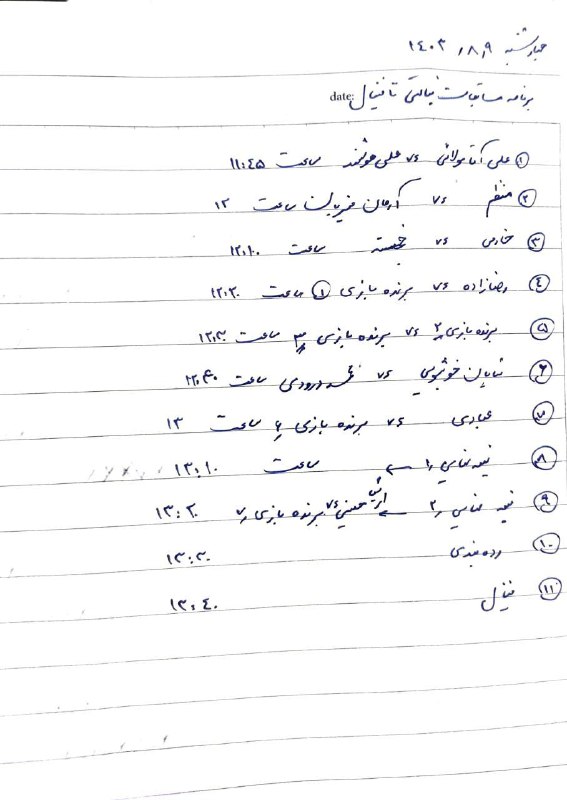 چهارشنبه ۱۴۰۳/۸/۹
date: برنامه مسابقات پنالتی تا فینال
① علی آقامولائی vs علی هوشمند ساعت ۱۱:۴۵
② منتظم vs آرمان ساعت ۱۲
③ خادمی vs خجسته ساعت ۱۲:۱۰
④ رضازاده vs برنده بازی ① ساعت ۱۲:۲۰
⑤ برنده بازی ۲ vs برنده بازی ۳ ساعت ۱۲:۳۰
⑥ شایان خوشبویی vs ساعت ۱۲:۴۰
⑦ عبادی vs برنده بازی ۶ ساعت ۱۳
⑧ نیمه نهایی ۱ ← ساعت ۱۳:۱۰
⑨ نیمه نهایی ۲ ← حسینی vs برنده بازی ۷ ۱۳:۲۰
⑩ رده بندی ۱۳:۳۰
⑪ فینال ۱۳:۴۰